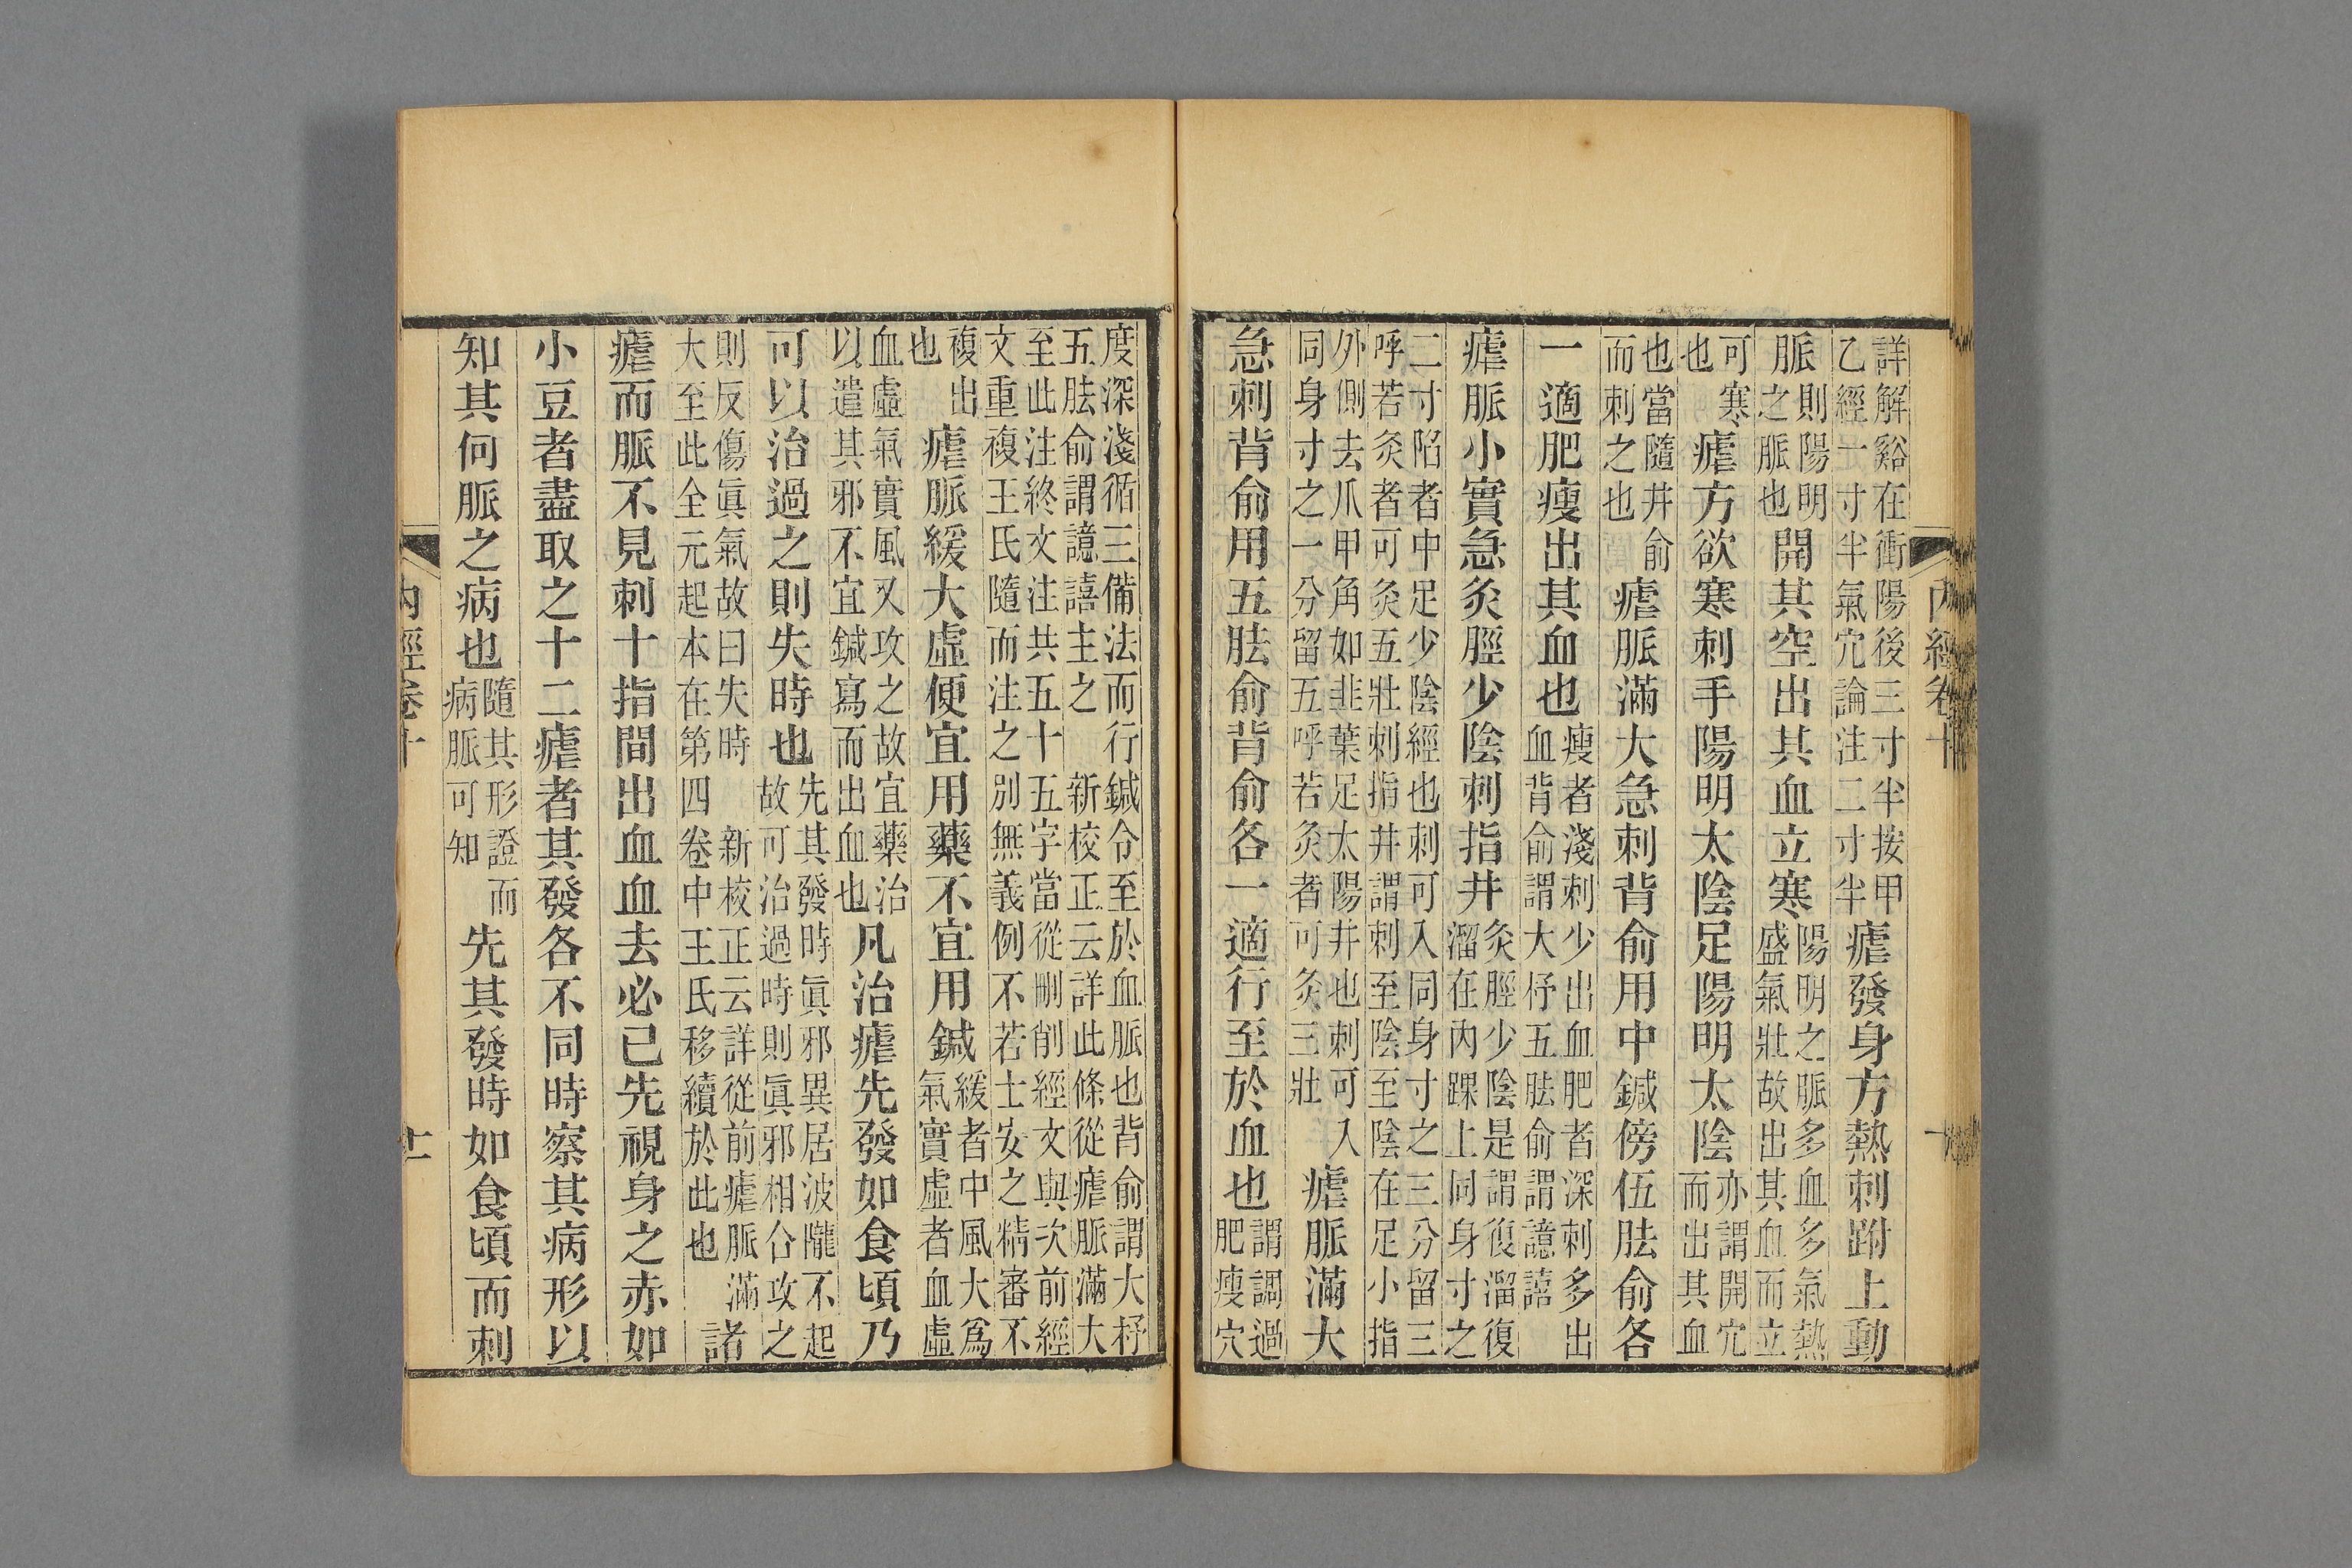 詳解谿在衝陽後三寸半按甲
乙經一寸半氣穴論注二寸半
瘧發身方熱刺跗上動
脈
則陽明
之脈也
開其空出其血立寒
陽明之脈多血多氣熱
盛氣壯故出其血而立
可寒
也
瘧方欲寒刺手陽明太陰足陽明太陰
亦謂開穴
而出其血
也當隨井俞
而刺之也
瘧脈滿大急刺背俞用中鍼傍伍胠俞各
一適肥瘦出其血也
瘦者淺刺少出血肥者深刺多出
血背俞謂大杼五胠俞謂譩譆
瘧脈小實急灸脛少陰刺指井
灸脛少陰是謂復溜復
溜在內踝上同身寸之
二寸陷者中足少陰經也刺可入同身寸之三分留三
呼若灸者可灸五壯刺指井謂刺至陰至陰在足小指
外側去爪甲角如韭葉足太陽井也刺可入
同身寸之一分留五呼若灸者可灸三壯
瘧脈滿大
急刺背俞用五胠俞背俞各一適行至於血也
謂調適
肥瘦穴
度深淺循三備法而行鍼令至於血脈也背俞謂大杼
五胠俞謂譩譆主之　新校正云詳此條從瘧脈滿大
至此注終文注共五十五字當從刪削經文與次前經
文重複王氏隨而注之別無義例不若士安之精審不
複出
也
瘧脈緩大虛便宜用藥不宜用鍼
緩者中風大爲
氣實虛者血虛
血虛氣實風又攻之故宜藥治
以遣其邪不宜鍼寫而出血也
凡治瘧先發如食頃乃
可以治過之則失時也
先其發時眞邪異居波隴不起
故可治過時則眞邪相合攻之
則反傷眞氣故曰失時　新校正云詳從前瘧脈滿
大至此全元起本在第四卷中王氏移續於此也
諸
瘧而脈不見刺十指間出血血去必已先視身之赤如
小豆者盡取之十二瘧者其發各不同時察其病形以
知其何脈之病也
隨其形證而
病脈可知
先其發時如食頃而刺
內經卷十
十一